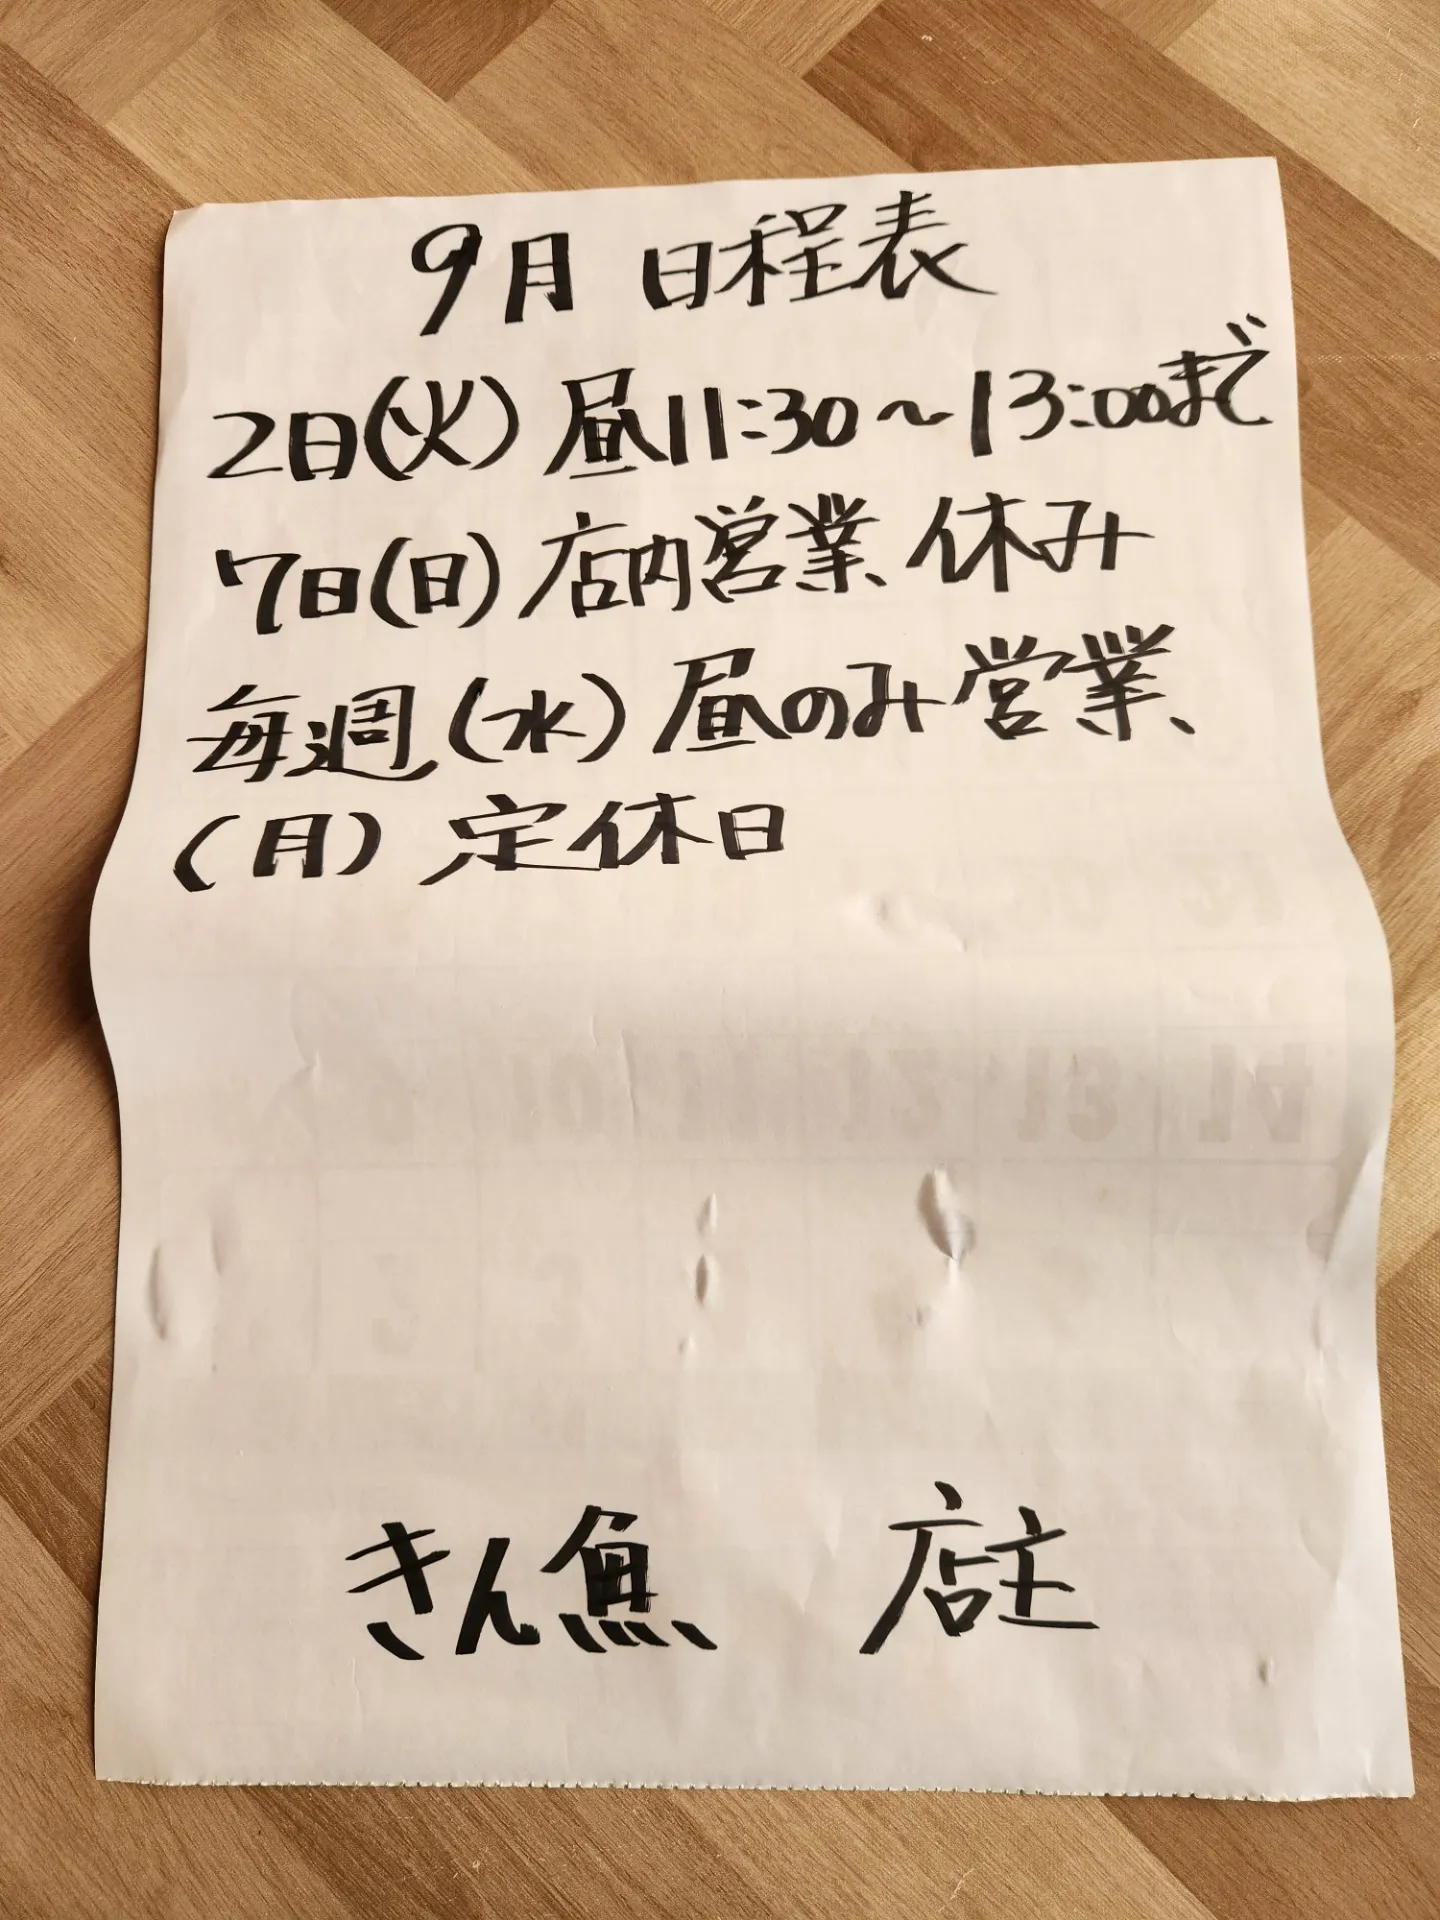 9月 日程表
2日(火)昼11:30~13:00まで
7日(日)店内営業、休み
毎週(水)昼のみ営業、
(月)定休日
14 13 12 11 10 9
きん魚 店主